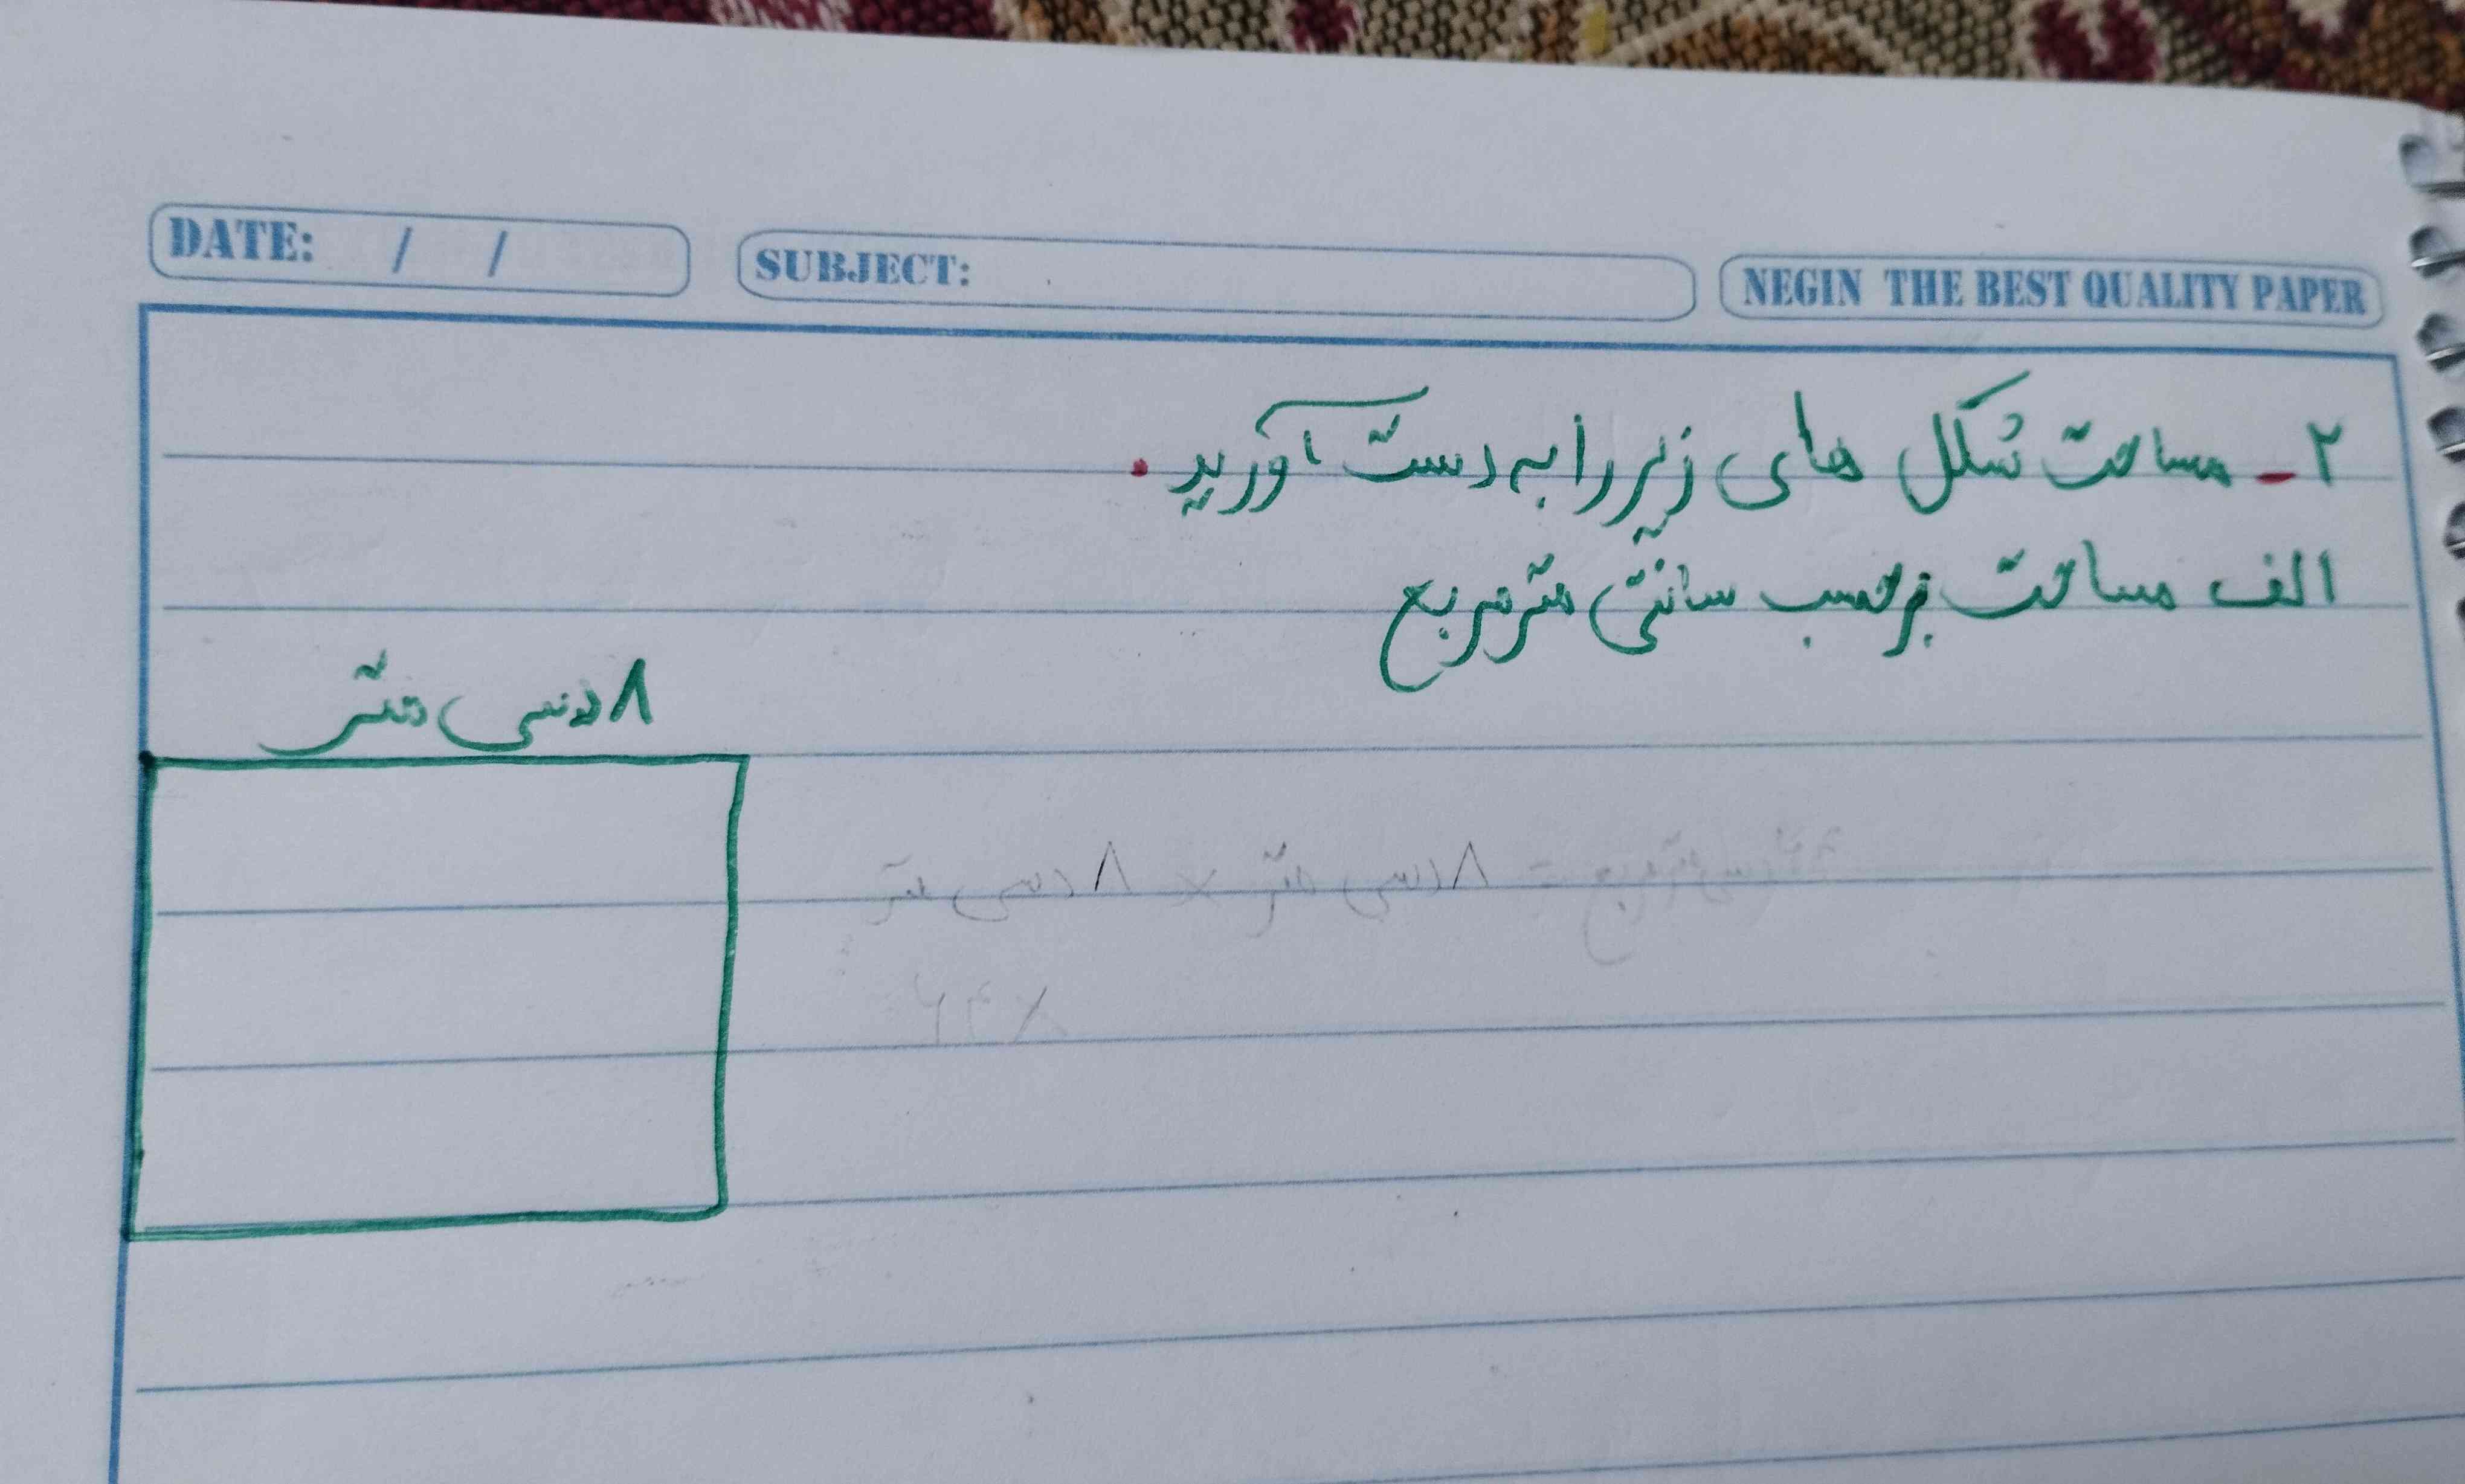 DATE: / /
SUBJECT:
NEGIN THE BEST QUALITY PAPER
۲- مساحت شکل های زیر را به دست آورید.
الف مساحت برحسب سانتی مترمربع
۸ دسی متر
۸ دسی متر × ۸ دسی متر =